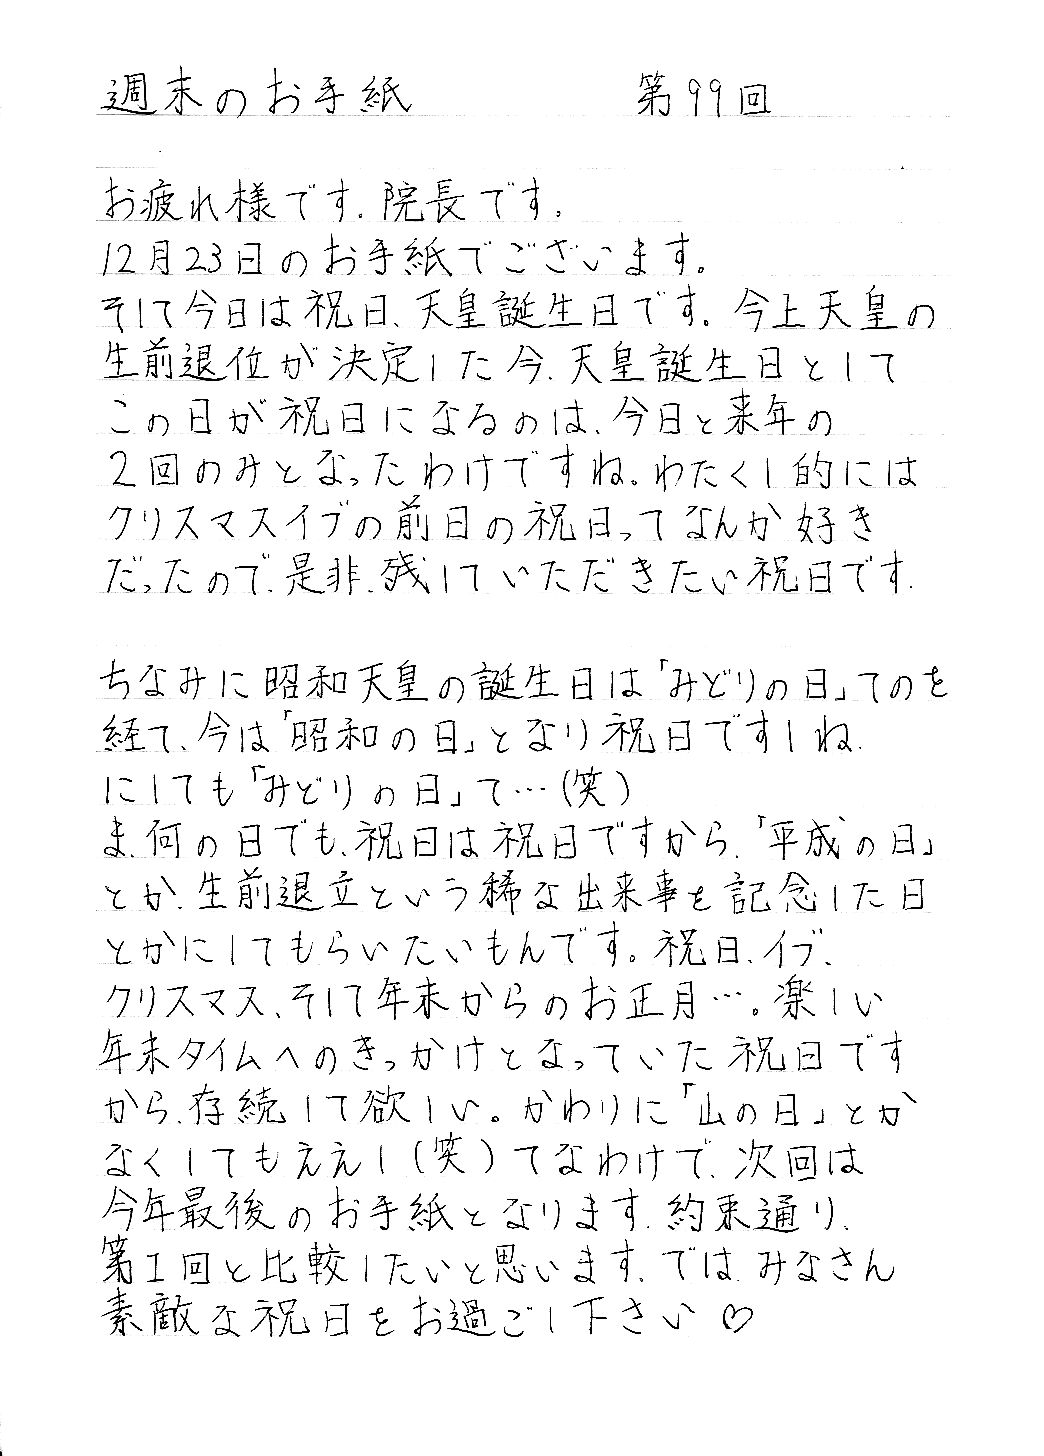 週末のお手紙 第99回
お疲れ様です.院長です。
12月23日のお手紙でございます。
そして今日は祝日、天皇誕生日です。今上天皇の
生前退位が決定した今、天皇誕生日として
この日が祝日になるのは、今日と来年の
2回のみとなったわけですね。わたくし的には
クリスマスイブの前日の祝日ってなんか好き
だったので、是非、残していただきたい祝日です.
ちなみに昭和天皇の誕生日は「みどりの日」てのを
経て、今は「昭和の日」となり祝日ですしね.
にしても「みどりの日」て…(笑)
ま、何の日でも、祝日は祝日ですから、「平成の日」
とか、生前退立という稀な出来事を記念した日
とかにしてもらいたいもんです。祝日、イブ、
クリスマス、そして年末からのお正月…。楽しい
年末タイムへのきっかけとなっていた祝日です
から、存続して欲しい。かわりに「山の日」とか
なくしてもええし(笑)てなわけで、次回は
今年最後のお手紙となります.約束通り、
第1回と比較したいと思います.では、みなさん
素敵な祝日をお過ごし下さい♡